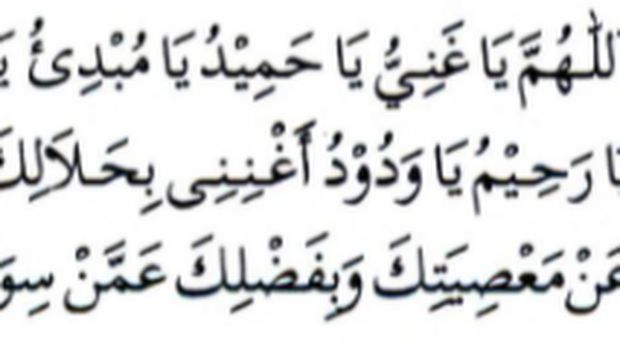 اللّٰهُمَّ يَا غَنِيُّ يَا حَمِيْدُ يَا مُبْدِئُ يَ
يَا رَحِيْمُ يَا وَدُوْدُ أَغْنِنِى بِحَلاَلِكَ
عَنْ مَعْصِيَتِكَ وَبِفَضْلِكَ عَمَّنْ سِوَ